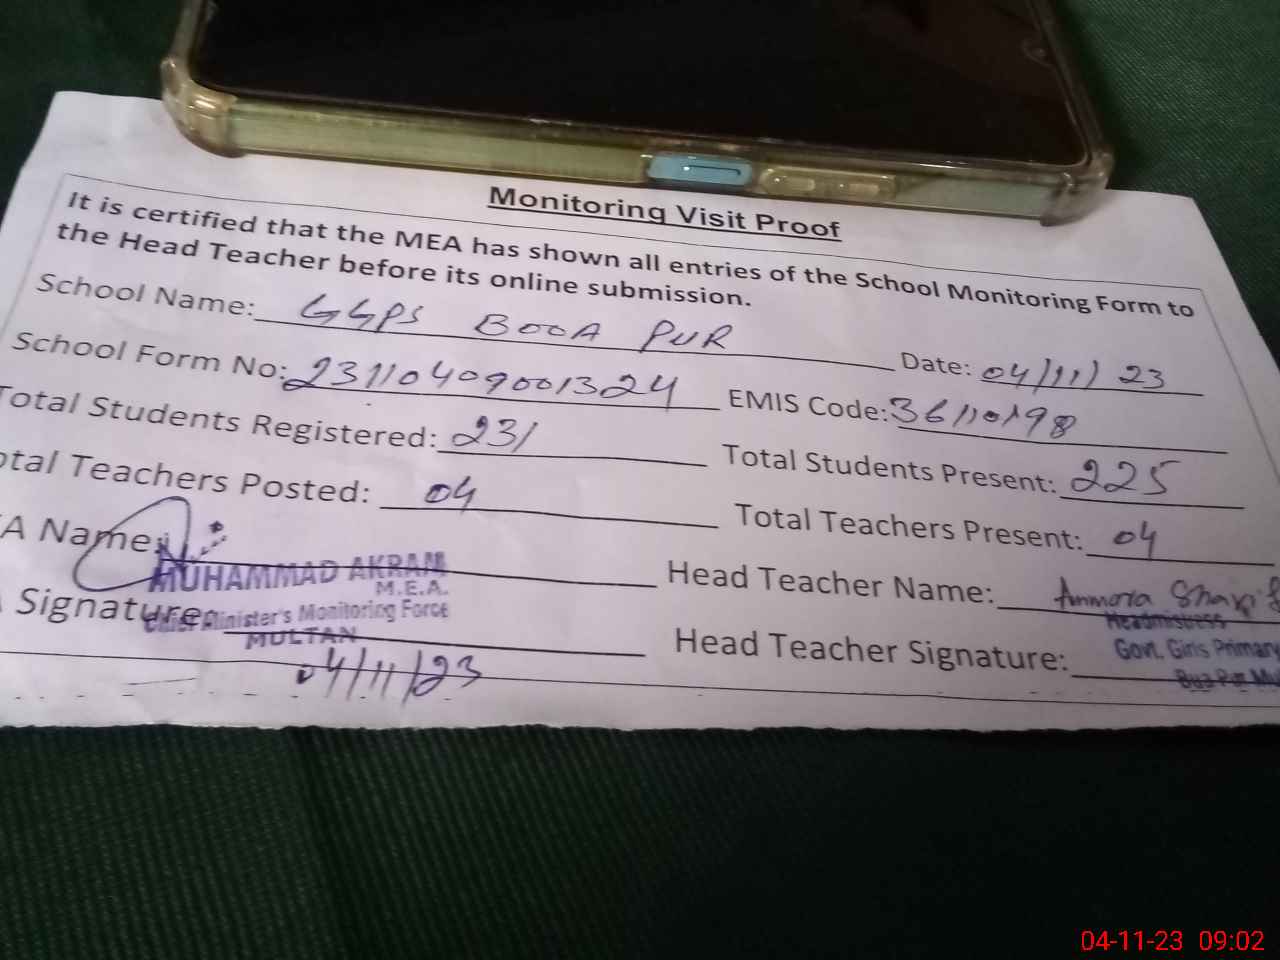 Monitoring Visit Proof
It is certified that the MEA has shown all entries of the School Monitoring Form to
the Head Teacher before its online submission.
School Name: GGPS BOOA PUR Date: 04/11/23
School Form No: 23110409001324 EMIS Code: 36110198
Total Students Registered: 231 Total Students Present: 225
otal Teachers Posted: 04 Total Teachers Present: 04
A Name: Head Teacher Name: Ammara Sharif
MUHAMMAD AKRAM
M.E.A.
Signature: Chief Minister's Monitoring Force
MULTAN
04/11/23
Head Teacher Signature:
Headmistress
Govt. Girls Primary
Bua Pur Mu
04-11-23 09:02